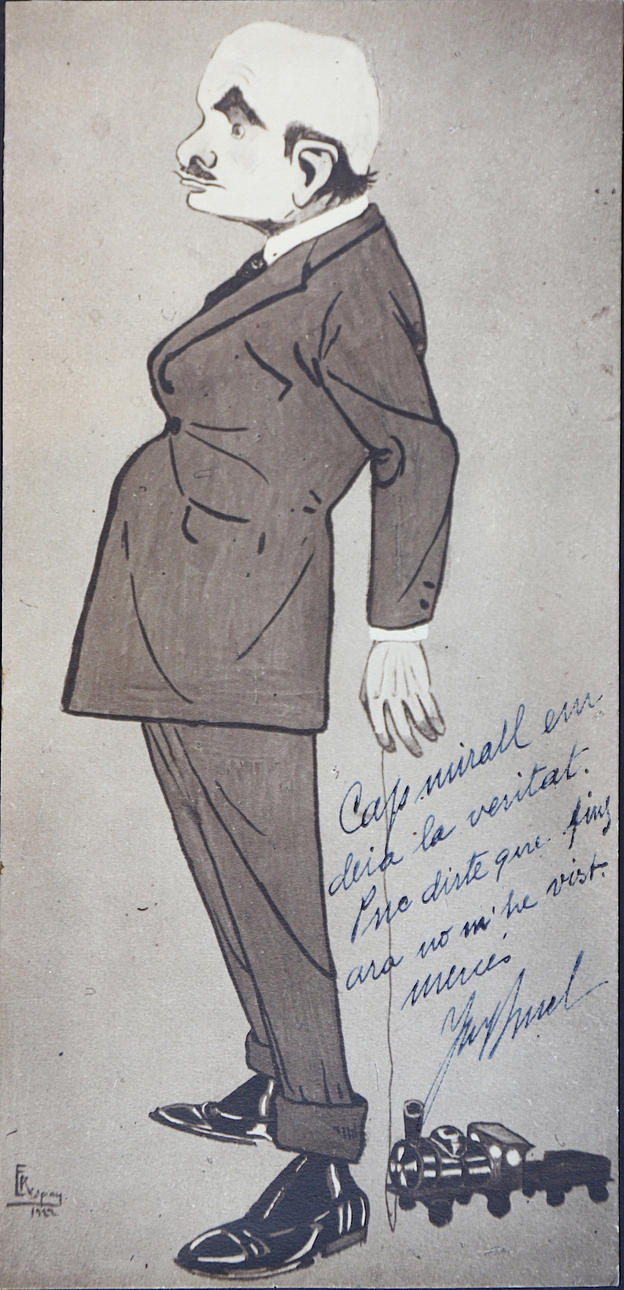 Cap mirall em
deia la veritat.
Puc dirte que fins
ara no m'he vist.
mercés
1922